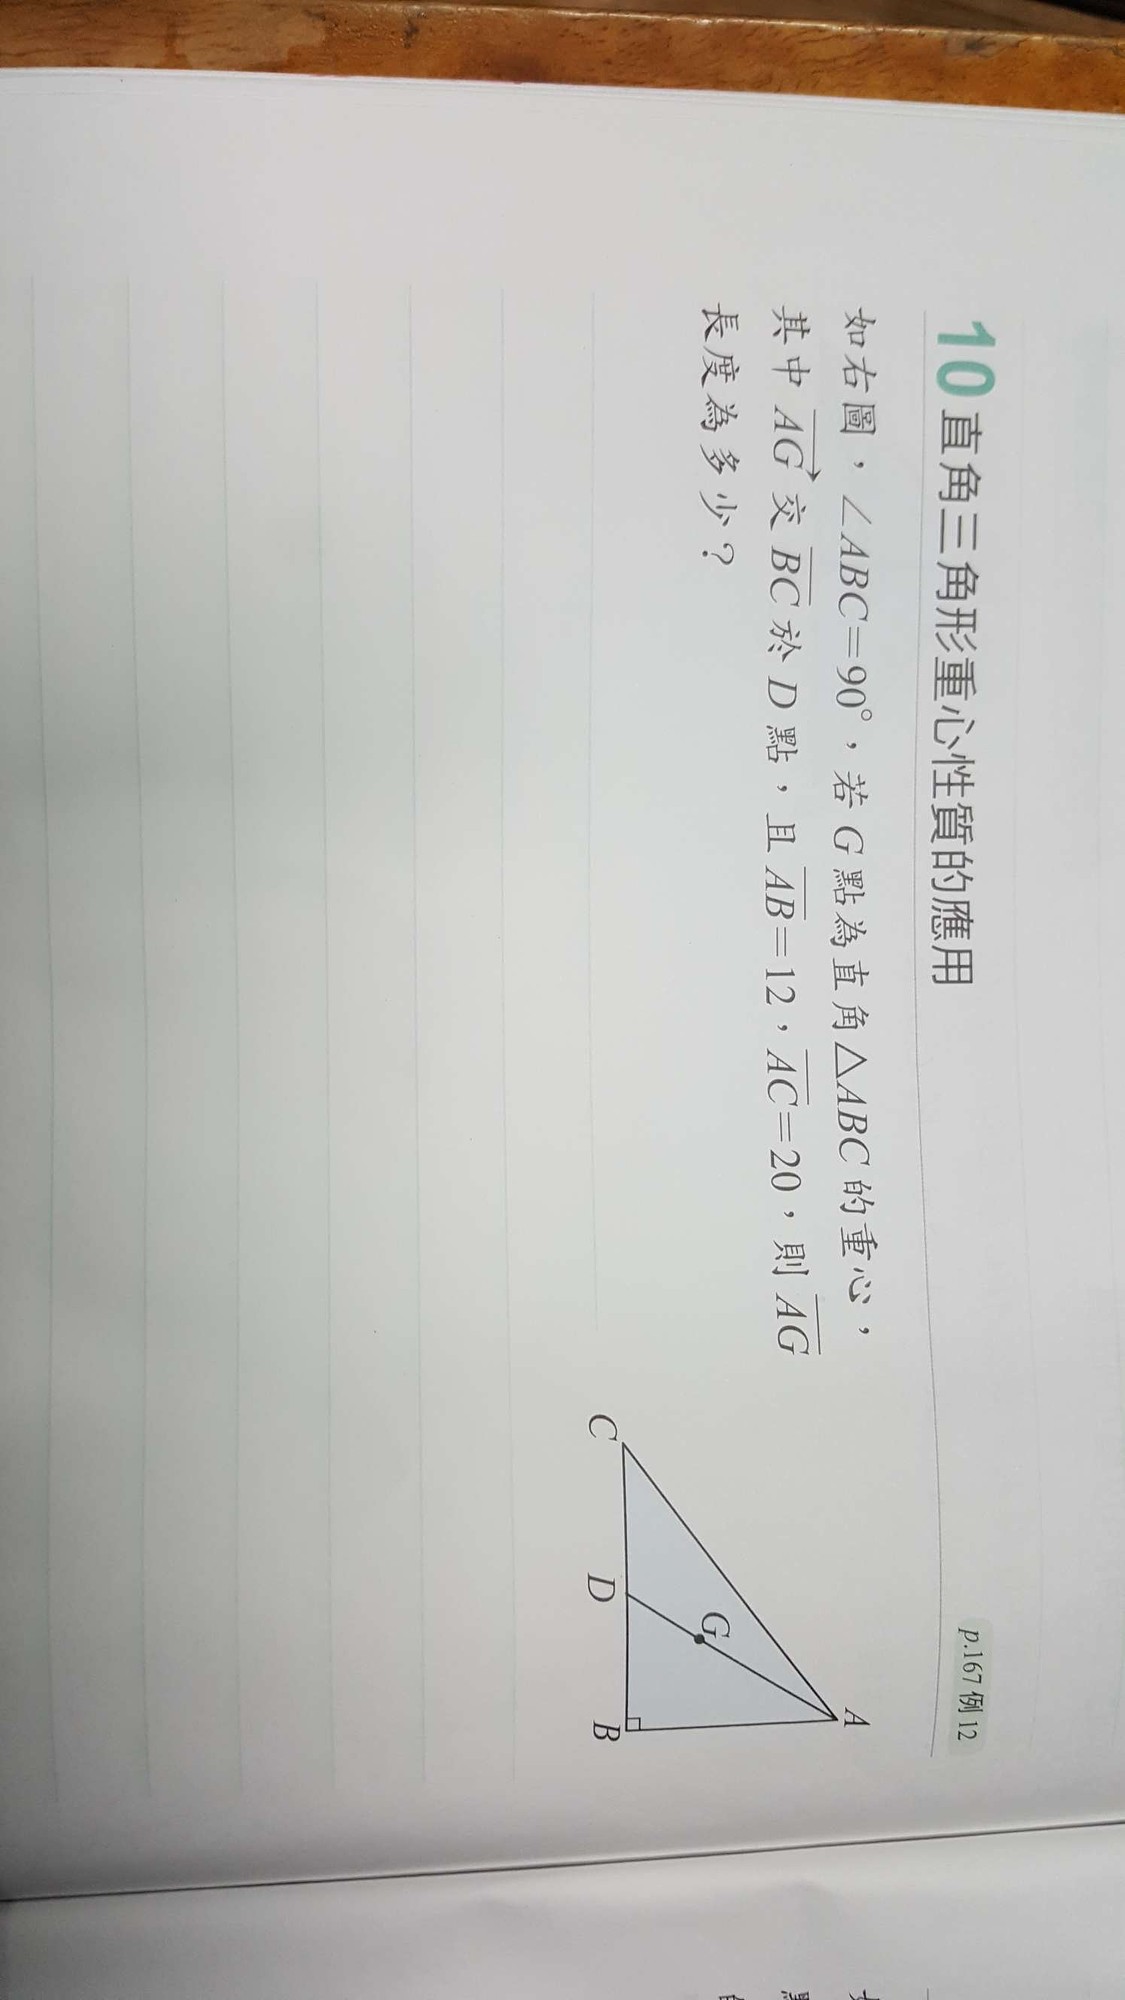 10 直角三角形重心性質的應用
p.167 例 12
如右圖，∠ABC=90°，若 G 點為直角△ABC 的重心，
其中 AG 交 BC 於 D 點，且 AB=12，AC=20，則 AG
長度為多少？
A
G
C
D
B